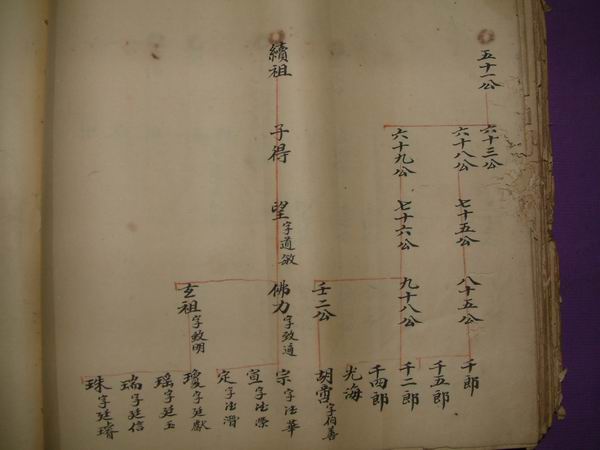 五十一公
六十三公
六十八公
七十五公
八十五公
千郎
千五郎
六十九公
七十六公
九十八公
千二郎
千四郎
壬二公
光海
胡霄字伯善
續祖
子得
望字道敏
佛力字致通
宗字法華
宣字法榮
定字法滑
玄祖字致明
瓊字廷獻
瑶字廷玉
瑞字廷信
珠字廷璿